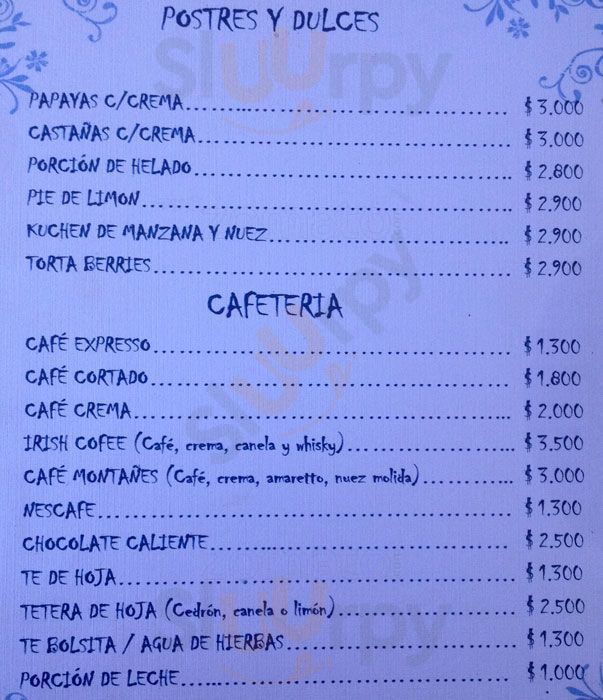 POSTRES Y DULCES
PAPAYAS C/CREMA........................................ $ 3.000
CASTAÑAS C/CREMA....................................... $ 3.000
PORCIÓN DE HELADO...................................... $ 2.800
PIE DE LIMON........................................... $ 2.900
KUCHEN DE MANZANA Y NUEZ............................... $ 2.900
TORTA BERRIES.......................................... $ 2.900
CAFETERIA
CAFÉ EXPRESSO.......................................... $ 1.300
CAFÉ CORTADO........................................... $ 1.800
CAFÉ CREMA............................................. $ 2.000
IRISH COFEE (Café, crema, canela y whisky)..................... $ 3.500
CAFÉ MONTAÑES (Café, crema, amaretto, nuez molida)............ $ 3.000
NESCAFE................................................ $ 1.300
CHOCOLATE CALIENTE..................................... $ 2.500
TE DE HOJA............................................. $ 1.300
TETERA DE HOJA (Cedrón, canela o limón)...................... $ 2.500
TE BOLSITA / AGUA DE HIERBAS........................... $ 1.300
PORCIÓN DE LECHE....................................... $ 1.000
Sluurpy
Sluurpy
Sluurpy